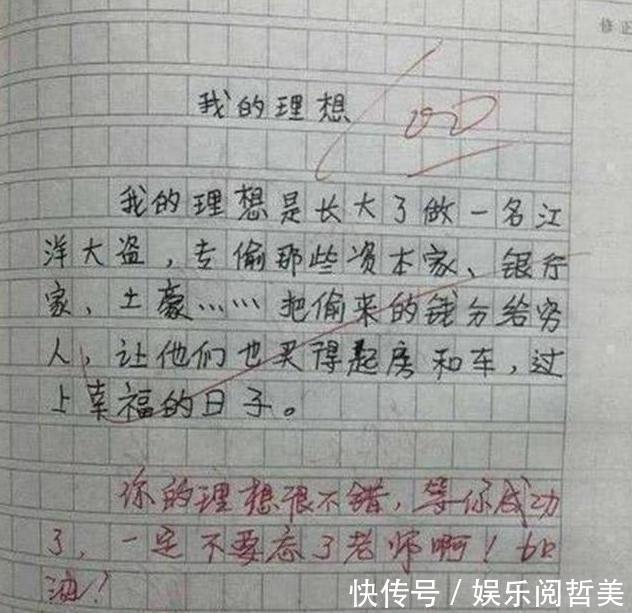 修正
我的理想
我的理想是长大了做一名江
洋大盗，专偷那些资本家、银行
家、土豪……把偷来的钱分给穷
人，让他们也买得起房和车，过
上幸福的日子。
你的理想很不错，等你成功
了，一定不要忘了老师啊！加
油！
快传号／娱乐阅哲美